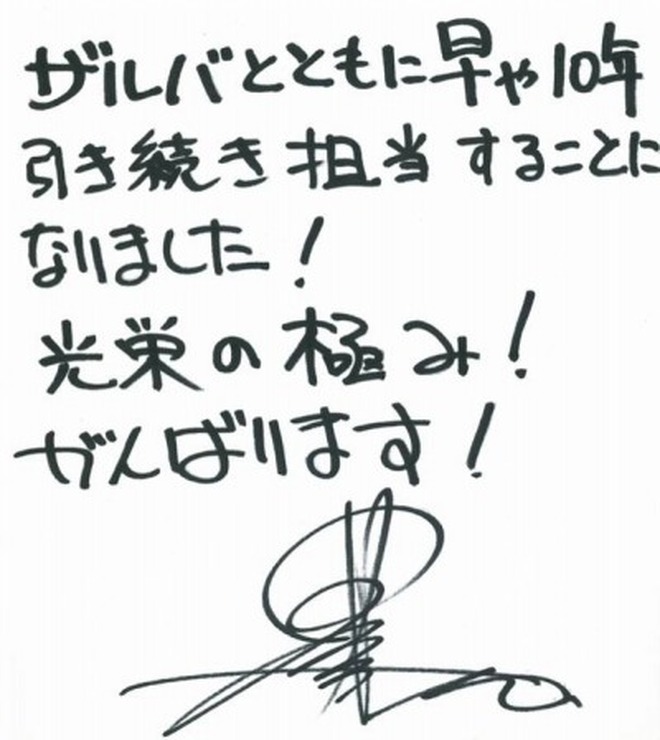 ザルバとともに早や10年
引き続き担当することに
なりました！
光栄の極み！
がんばります！